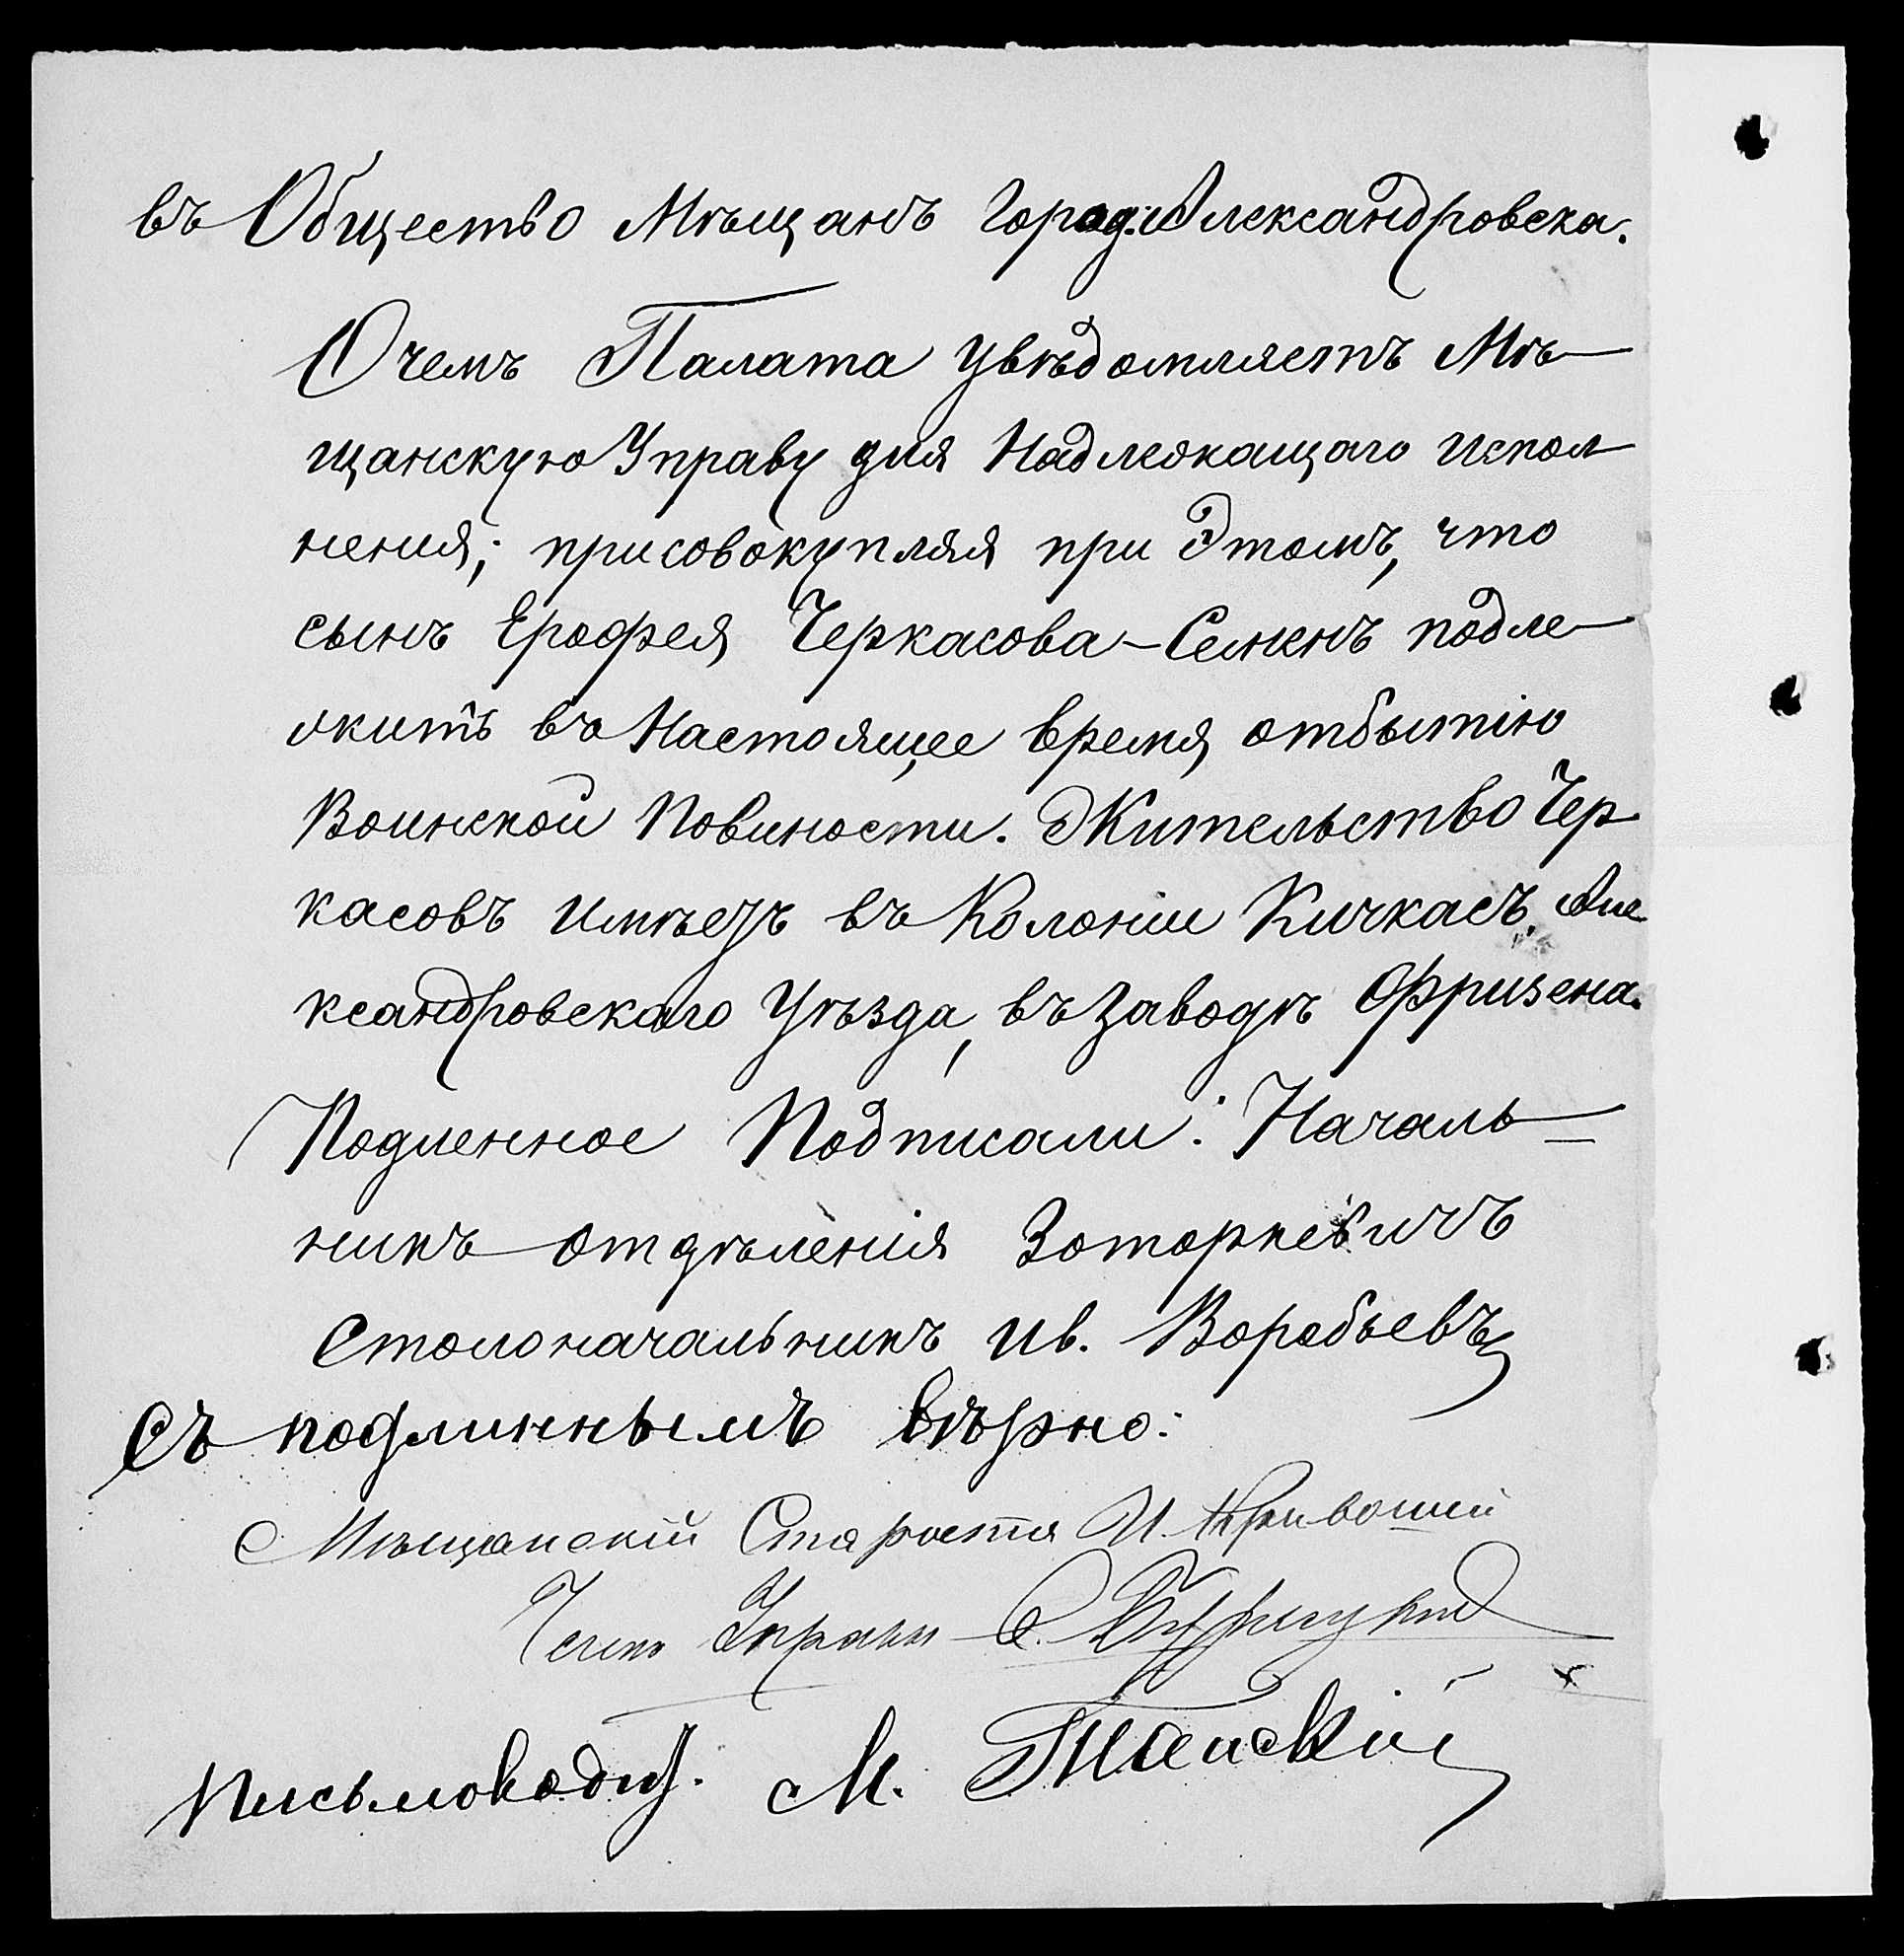 въ Общество Мѣщанъ Город: Александровска.
О чемъ Палата увѣдомляетъ Мѣ-
щанскую Управу для Надлежащаго испол-
нения; присовокупляя при Этомъ, что
сынъ Ерофея Черкасова - Семенъ подле-
житъ въ Настоящее время отбытію
Воинской Повиности. Жительство Чер-
касовъ имѣетъ въ Колоніи Кичкасъ, Але-
ксандровскаго Уѣзда, въ заводѣ Фризена.
Подленное Подписали: Началь-
никъ отдѣленія Зоторкевичъ
Столоначальникъ Ив. Воробьевъ
Съ подлиннымъ вѣрно:
Мѣщанскій Староста И. Кривошей
Членъ Управы С.
Письмоводит. М.